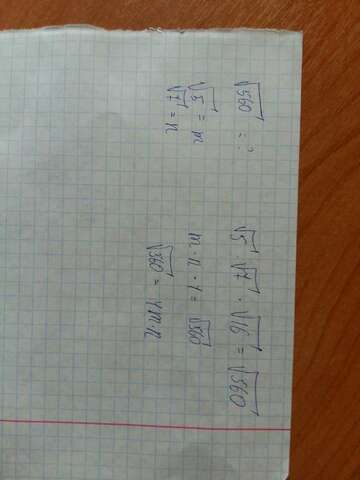 √560 = ?
√5 = m
√7 = n
√5 · √7 · √16 = √560
m · n · 4 = √560
√560 = 4m·n